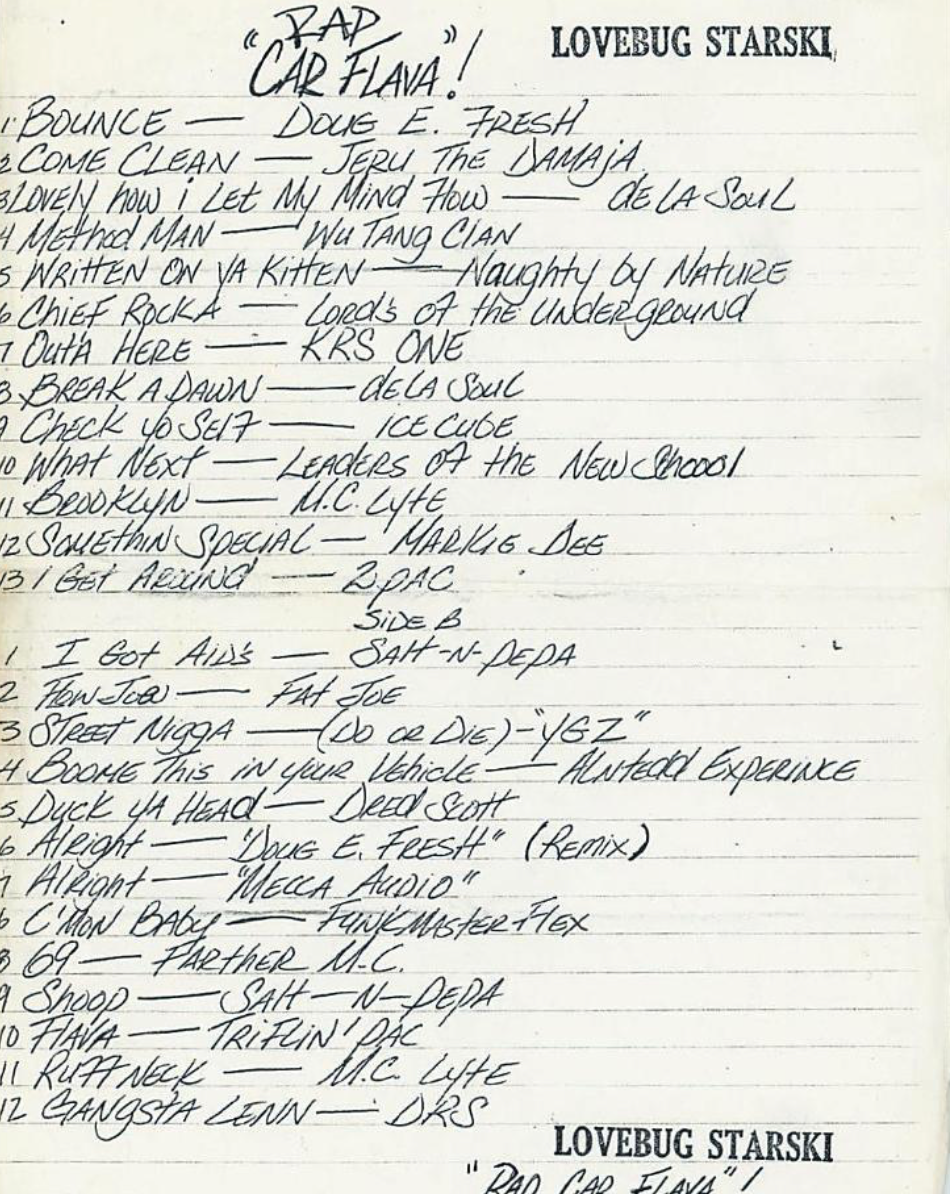 "RAP LOVEBUG STARSKI
CAR FLAVA"!
1. BOUNCE — DOUG E. FRESH
2 COME CLEAN — JERU THE DAMAJA
3 LOVELY how i LET My MiND Flow — dE LA SOUL
4 Method MAN — Wu TANg CLAN
5 WRiTTEN ON YA KiTTEN — NAughty by NATURE
6 ChiEF ROCKA — LORd's of the UNDERgROUND
7 OUTA HERE — KRS ONE
8 BREAK A DAWN — dE LA SOUL
9 ChECK yo SElf — iCE CUBE
10 WhAt NEXT — LEADERS Of thE NEW Shoool
11 BROOKLYN — M.C. LytE
12 SOMEthiN SPECiAL — MARKiE DEE
13 I GEt AROUNd — 2 pAC
SiDE B
1 I Got AiD's — SAlt-N-pEpA
2 Flow Joe — FAt JOE
3 STREET NiggA — (DO OR DiE) - "YGZ"
4 BOOME This iN yOUR VEhicle — AlNtEdd EXPERiNCE
5 DUCK YA HEAd — DRED SCOtt
6 AlRight — "DOUG E. FRESH" (REMix)
7 AlRight — "MECCA AUDiO"
6 C'MON BABy — FUNKMASTER FlEX
8 69 — FARTHER M.C.
9 Shoop — SAlt-N-PEPA
10 FlAVA — TRiFLiN' PAC
11 RUFFNECK — M.C. LytE
12 GANgSTA LENN — DRS
LOVEBUG STARSKI
"RAP CAR FLAVA"!